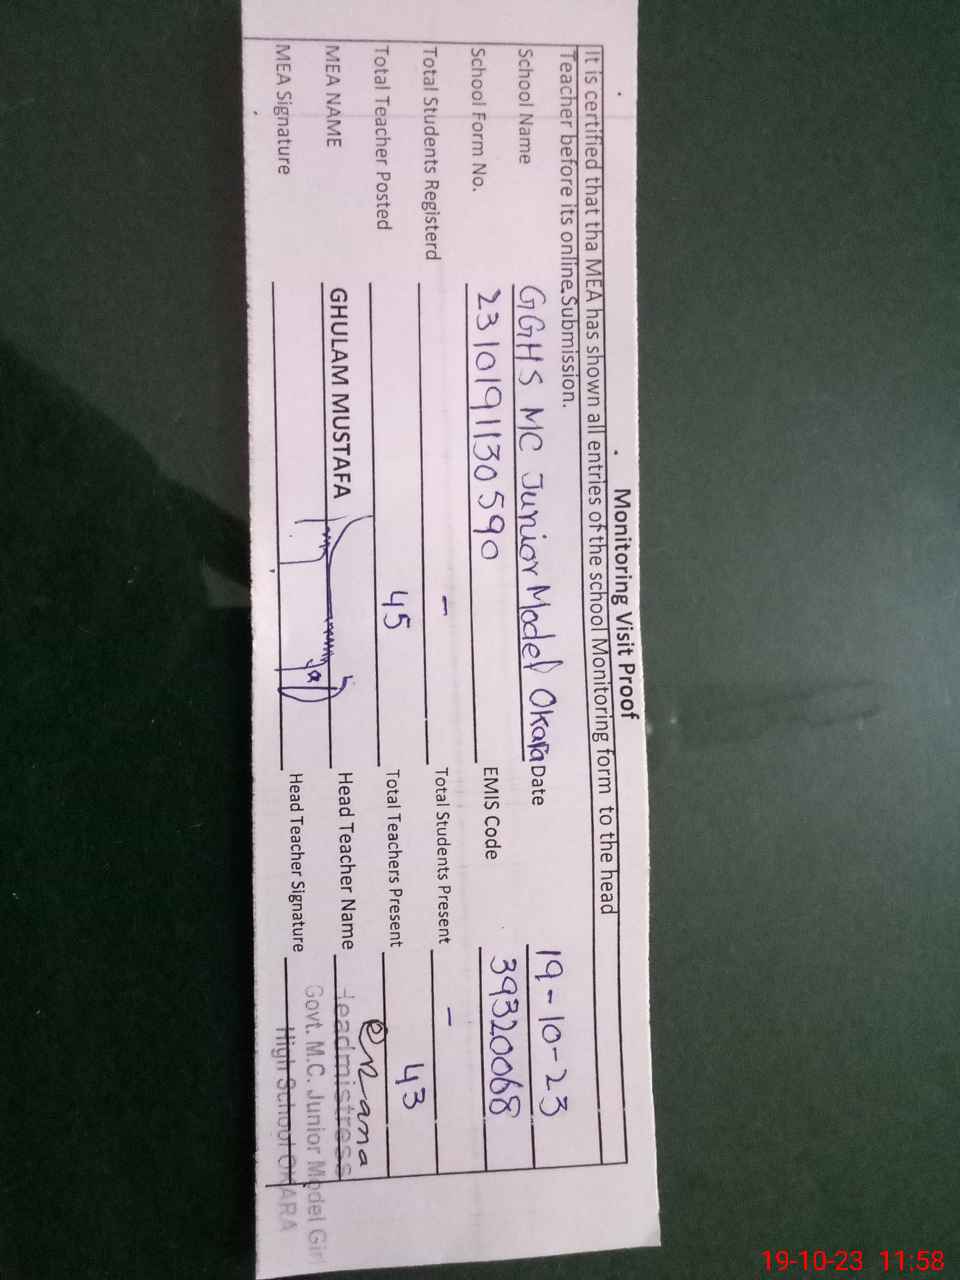 Monitoring Visit Proof
It is certified that tha MEA has shown all entries of the school Monitoring form to the head
Teacher before its online.Submission.
School Name GGHS MC Junior Model Okara Date 19-10-23
School Form No. 2310191130590 EMIS Code 39320068
Total Students Registerd - Total Students Present -
Total Teacher Posted 45 Total Teachers Present 43
MEA NAME GHULAM MUSTAFA Head Teacher Name
MEA Signature Head Teacher Signature
Headmistress
Govt. M.C. Junior Model Girl
High School OKARA
19-10-23 11:58